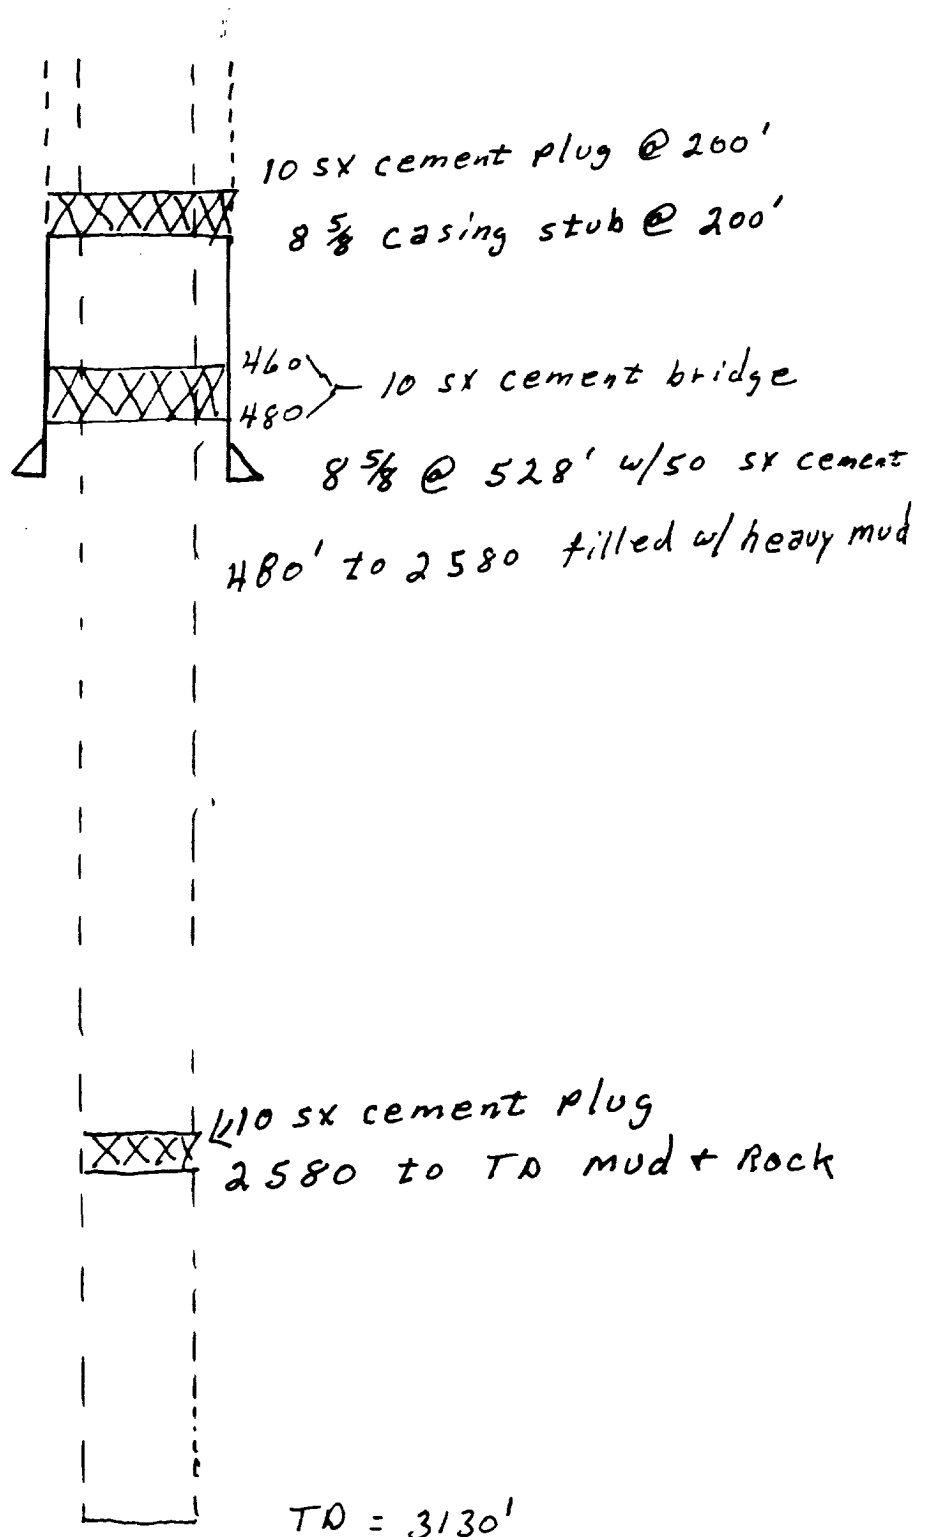 10 sx cement plug @ 200'
8 5/8 casing stub @ 200'
460
10 sx cement bridge
480
8 5/8 @ 528' w/50 sx cement
480' to 2580 filled w/ heavy mud
10 sx cement plug
2580 to TD mud + Rock
TD = 3130'